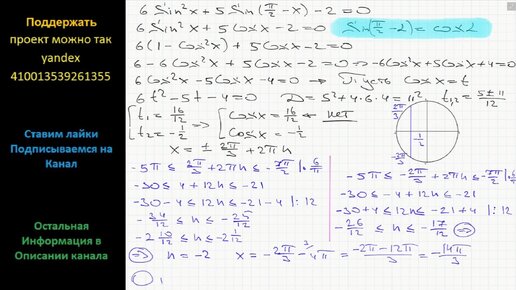 Поддержать
проект можно так
yandex
410013539261355
Ставим лайки
Подписываемся на
Канал
Остальная
Информация в
Описании канала
6 Sin²x + 5 Sin(π/2 - x) - 2 = 0
6 Sin²x + 5 Cosx - 2 = 0 Sin(π/2 - 2) = Cos2
6(1 - Cos²x) + 5 Cosx - 2 = 0
6 - 6 Cos²x + 5 Cosx - 2 = 0 ⇒ -6Cos²x + 5Cosx + 4 = 0
6 Cos²x - 5 Cosx - 4 = 0 ⇒ Пусть Cosx = t
6t² - 5t - 4 = 0 D = 5² + 4·6·4 = 11² t₁,₂ = (5 ± 11)/12
[t₁ = 16/12 ⇒ [Cosx = 16/12 ← нет
t₂ = -1/2 Cosx = -1/2
x = ± 2π/3 + 2πn
2π/3
-1/2
-2π/3
-5π ≤ 2π/3 + 2πn ≤ -7π/2 |·6/π
-30 ≤ 4 + 12n ≤ -21
-30 - 4 ≤ 12n ≤ -21 - 4 |:12
-34/12 ≤ n ≤ -25/12
-2 10/12 ≤ n ≤ -2 1/12
⇒ n = -2 x = -2π/3 - 4π = (-2π - 12π)/3 = -14π/3
-5π ≤ -2π/3 + 2πn ≤ -7π/2 |·6/π
-30 ≤ -4 + 12n ≤ -21
-30 + 4 ≤ 12n ≤ -21 + 4 |:12
-26/12 ≤ n ≤ -17/12